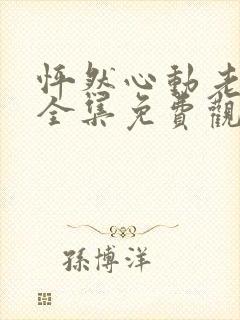 怦然心動
全集免費觀
孫博洋